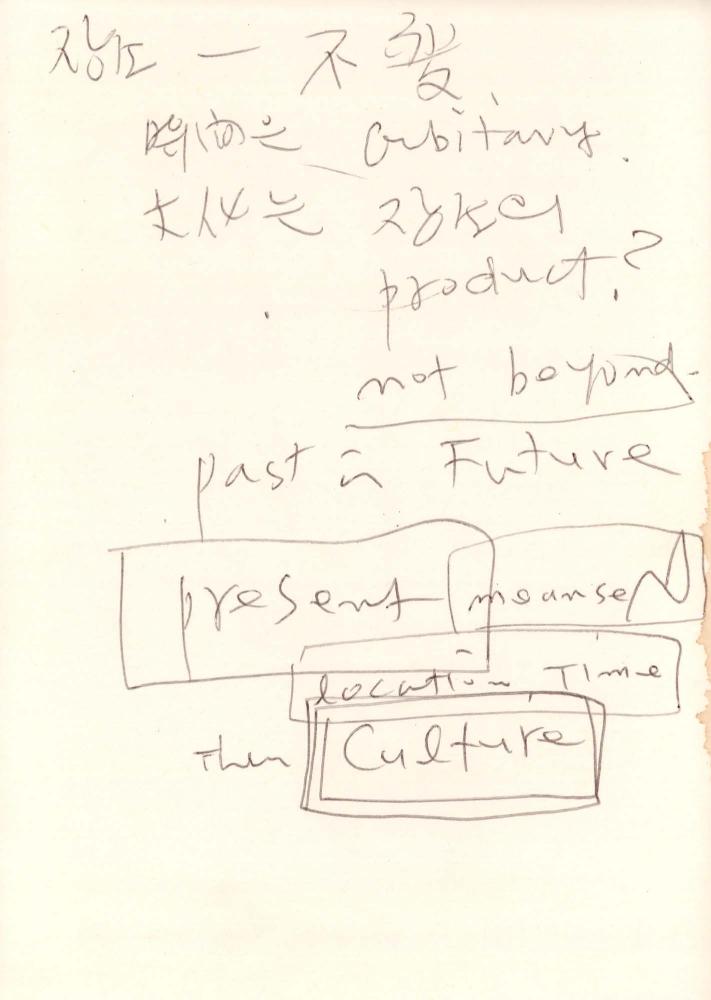 장소 — 不變
時間은 arbitary.
文化는 장소의
product?
not beyond
past in Future
present
location, Time
Then Culture